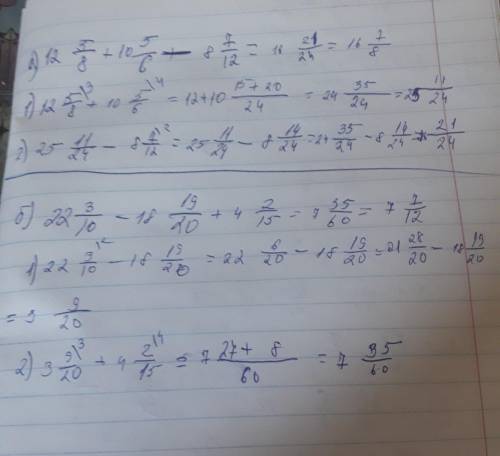 а) 12 5/8 + 10 5/6 - 8 7/12 = 16 21/24 = 16 7/8
1) 12 5/8\3 + 10 5/6\4 = 12+10 15+20/24 = 24 35/24 = 25 11/24
2) 25 11/24 - 8 7/12\2 = 25 11/24 - 8 14/24 = 24 35/24 - 8 14/24 = 21/24
б) 22 3/10 - 18 19/20 + 4 2/15 = 7 35/60 = 7 7/12
1) 22 3/10\2 - 18 19/20 = 22 6/20 - 18 19/20 = 21 28/20 - 18 19/20
= 3 9/20
2) 3 9/20\3 + 4 2/15\4 = 7 27+8/60 = 7 35/60